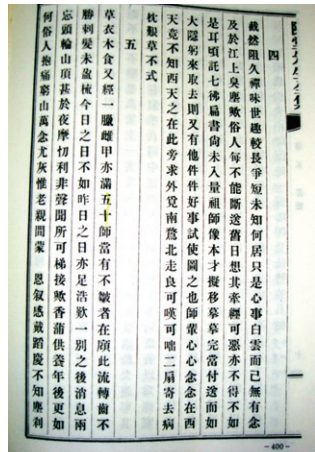 截然阻久禪味世趣較長爭短未知何居只是心事白雲而已無有念
四
及於江上臭塵歟俗人每不能斷送舊日想其牽纏可惡亦不得不如
是耳頃託七彿扁書尙未入量祖師像本才擬移摹摹完當付送而如
大隱躬來取去則又有他件件好事試使圖之也師輩心心念念在西
天竟不知西天之在此旁求外覓南鶩北走良可嘆可咄二扇寄去病
枕艱草不式
五
草衣木食又經一臘雌甲亦滿五十師當有不皺者在頋此流轉齒不
勝刺髮未盈梳今日之日不如昨日之日亦足浩歎一別之後消息兩
忘頭輪山頂甚於夜摩忉利非聲聞所可梯接歟香蒲供養年後更如
何俗人抱痛窮山萬念尤灰惟老親間蒙 恩叙感戴蹈慶不知塵利
-400-